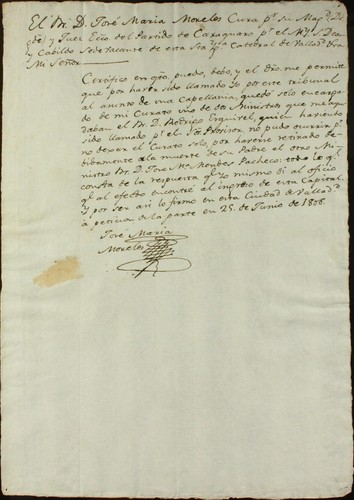 El Br. D. José Maria Morelos Cura pr. su Magd.
y Juez Eco. del Partido de Caraquaro pr. el M. Y. S. Dean
y Cabildo Sede Vacante de esta Sta. Yga. Catedral de Vallad.
Mi Señor.
Certifico en qto. puedo, debo, y el dro. me permite
que por haver sido llamado Yo por este tribunal
al asunto de una Capellania, quedó solo encarga-
do de mi Curato uno de dos Ministros que me ayu-
daban el Br. D. Rodrigo Esquivel, quien haviendo
sido llamado pr. el Sr. Provisor no pudo ocurrir pr.
no dexar el Curato solo, por haverse retirado
à la muerte de su Padre el otro Mi-
nistro Br. D. Jose Ma. Mendes Pacheco: todo lo ql.
consta de la respuesta qe. yo mismo di al oficio
ql. al efecto encontré al ingreso de esta Capital.
Y por ser asi lo firmo en esta Ciudad de Vallad.
à peticion de la parte en 25 de Junio de 1808.
José Maria
Morelos